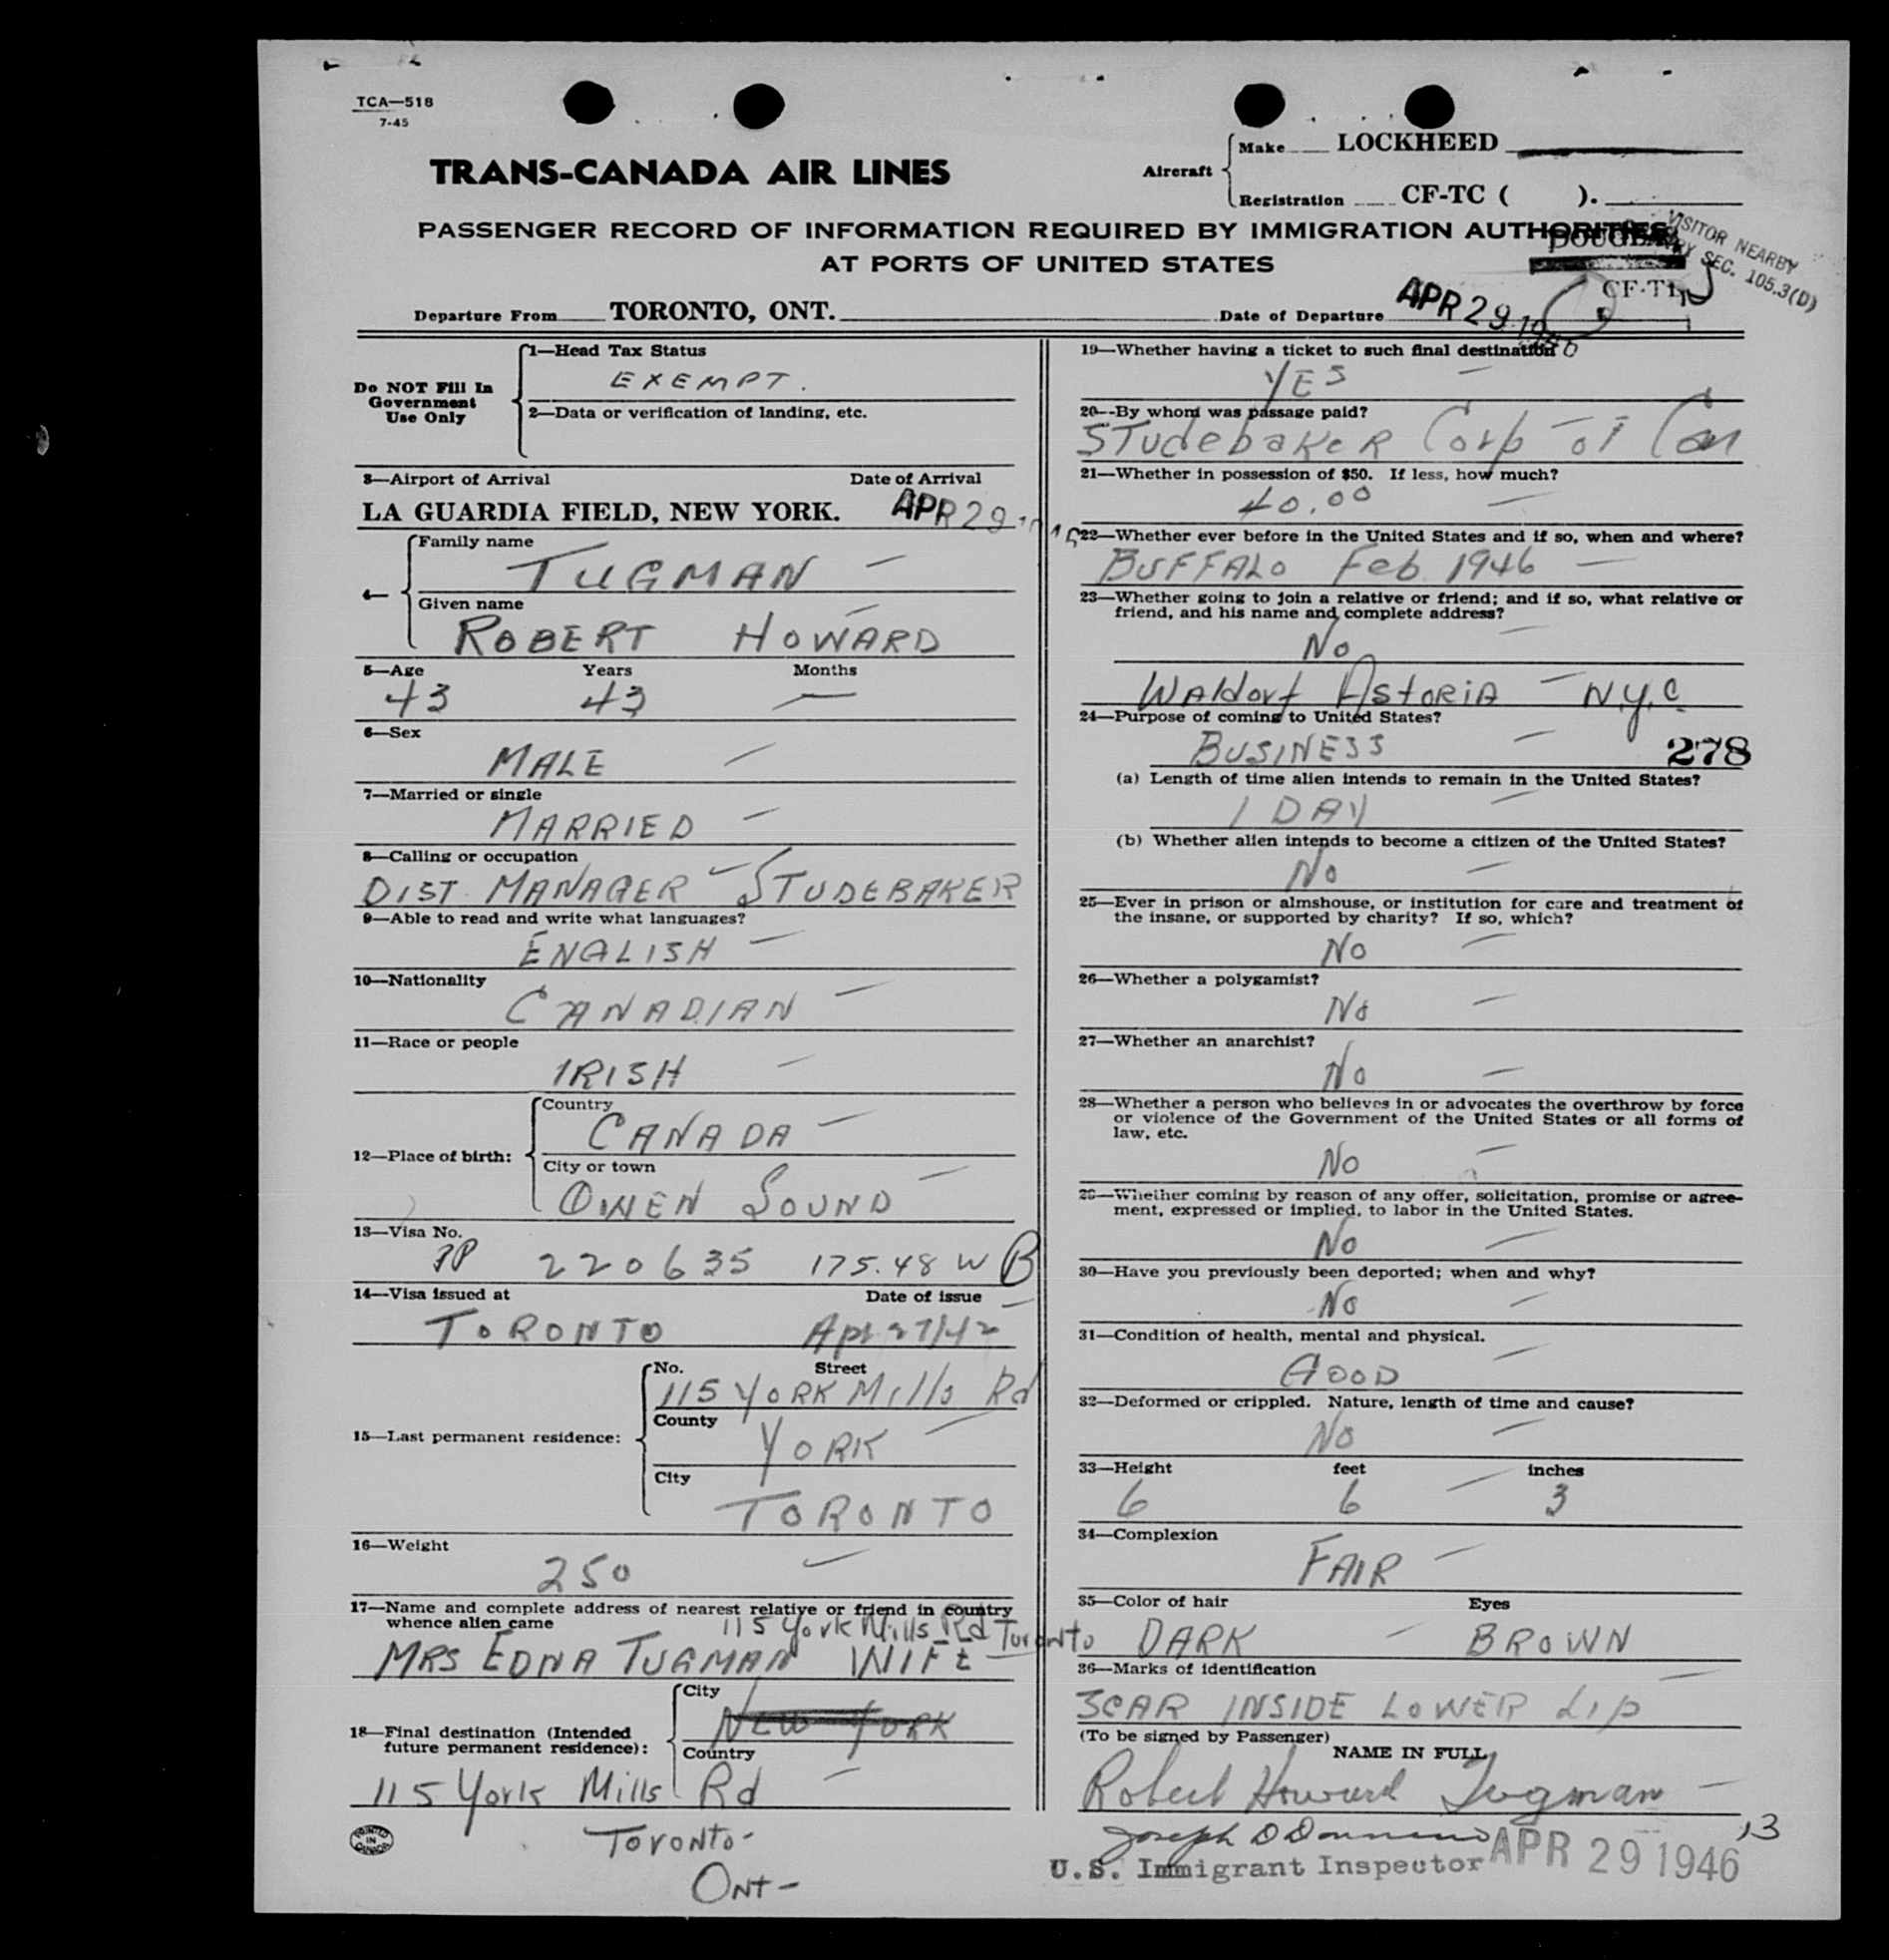 TCA—518
7-45
TRANS-CANADA AIR LINES
Aircraft
Make LOCKHEED
Registration CF-TC ( ).
PASSENGER RECORD OF INFORMATION REQUIRED BY IMMIGRATION AUTHORITIES
AT PORTS OF UNITED STATES
DOUGLAS
CF-T
VISITOR NEARBY
SEC. 105.3(D)
Departure From TORONTO, ONT.
Date of Departure APR 29 1946
Do NOT Fill In
Government
Use Only
1—Head Tax Status
EXEMPT.
2—Data or verification of landing, etc.
3—Airport of Arrival Date of Arrival
LA GUARDIA FIELD, NEW YORK. APR 29 1946
4—
Family name
TUGMAN —
Given name
ROBERT HOWARD
5—Age Years Months
43 43 —
6—Sex
MALE
7—Married or single
MARRIED
8—Calling or occupation
DIST. MANAGER – STUDEBAKER
9—Able to read and write what languages?
ENGLISH
10—Nationality
CANADIAN
11—Race or people
IRISH
12—Place of birth:
Country
CANADA
City or town
OWEN SOUND
13—Visa No.
220635 175.48 W B
14—Visa issued at Date of issue
TORONTO Apr 27/42
15—Last permanent residence:
No. Street
115 YORK Mills Rd
County
YORK
City
TORONTO
16—Weight
250
17—Name and complete address of nearest relative or friend in country
whence alien came
115 York Mills Rd Toronto
MRS EDNA TUGMAN WIFE
18—Final destination (Intended
future permanent residence):
City
NEW YORK
Country
115 York Mills Rd
Toronto-
ONT-
PRINTED
IN
CANADA
19—Whether having a ticket to such final destination
YES
20—By whom was passage paid?
STudebaKeR Corp of Can
21—Whether in possession of $50. If less, how much?
40.00
22—Whether ever before in the United States and if so, when and where?
BUFFALO Feb. 1946
23—Whether going to join a relative or friend; and if so, what relative or
friend, and his name and complete address?
No
Waldorf Astoria – N.Y.C.
24—Purpose of coming to United States?
BUSINESS
278
(a) Length of time alien intends to remain in the United States?
1 DAY
(b) Whether alien intends to become a citizen of the United States?
No
25—Ever in prison or almshouse, or institution for care and treatment of
the insane, or supported by charity? If so, which?
No
26—Whether a polygamist?
No
27—Whether an anarchist?
No
28—Whether a person who believes in or advocates the overthrow by force
or violence of the Government of the United States or all forms of
law, etc.
No
29—Whether coming by reason of any offer, solicitation, promise or agree-
ment, expressed or implied, to labor in the United States.
No
30—Have you previously been deported; when and why?
No
31—Condition of health, mental and physical.
GOOD
32—Deformed or crippled. Nature, length of time and cause?
No
33—Height feet inches
6 6 3
34—Complexion
FAIR
35—Color of hair Eyes
DARK BROWN
36—Marks of identification
SCAR INSIDE LOWER LIP
(To be signed by Passenger)
NAME IN FULL
Robert Howard Tugman
13
Joseph D
U.S. Immigrant Inspector APR 29 1946